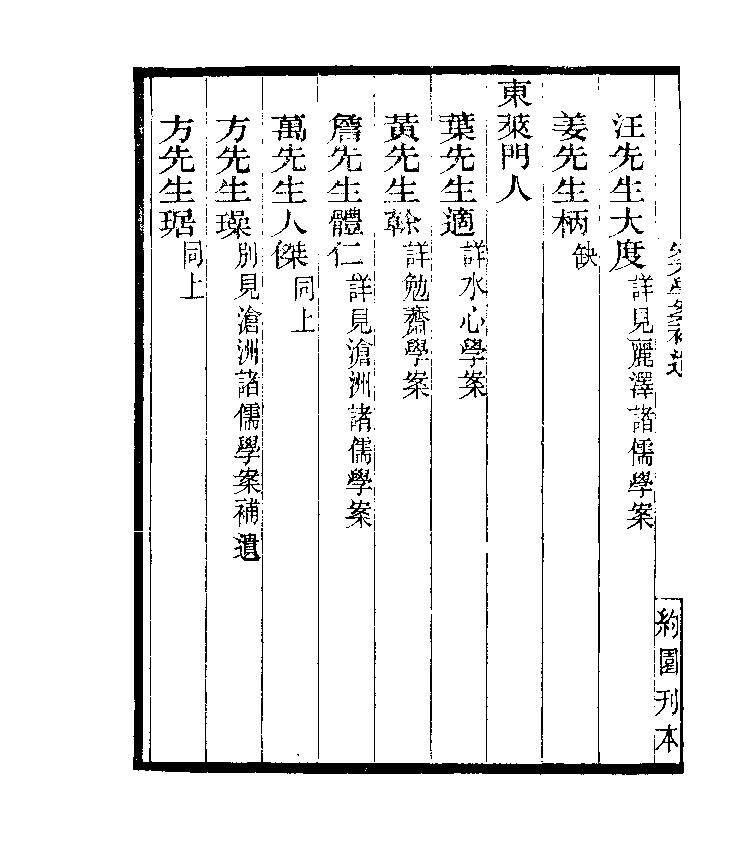 汪先生大度詳見麗澤諸儒學案
姜先生柄缺
東萊門人
葉先生適詳水心學案
黃先生榦詳勉齋學案
詹先生體仁詳見滄洲諸儒學案
萬先生人傑同上
方先生璪別見滄洲諸儒學案補遺
方先生琚同上
約園刊本